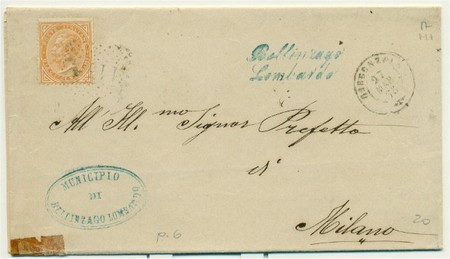 A
MI
Bellinzago
Lombardo
GORGONZOLA
All' Ill.mo Signor Prefetto
di
Milano
MUNICIPIO
DI
BELLINZAGO LOMBARDO
p. 6
20